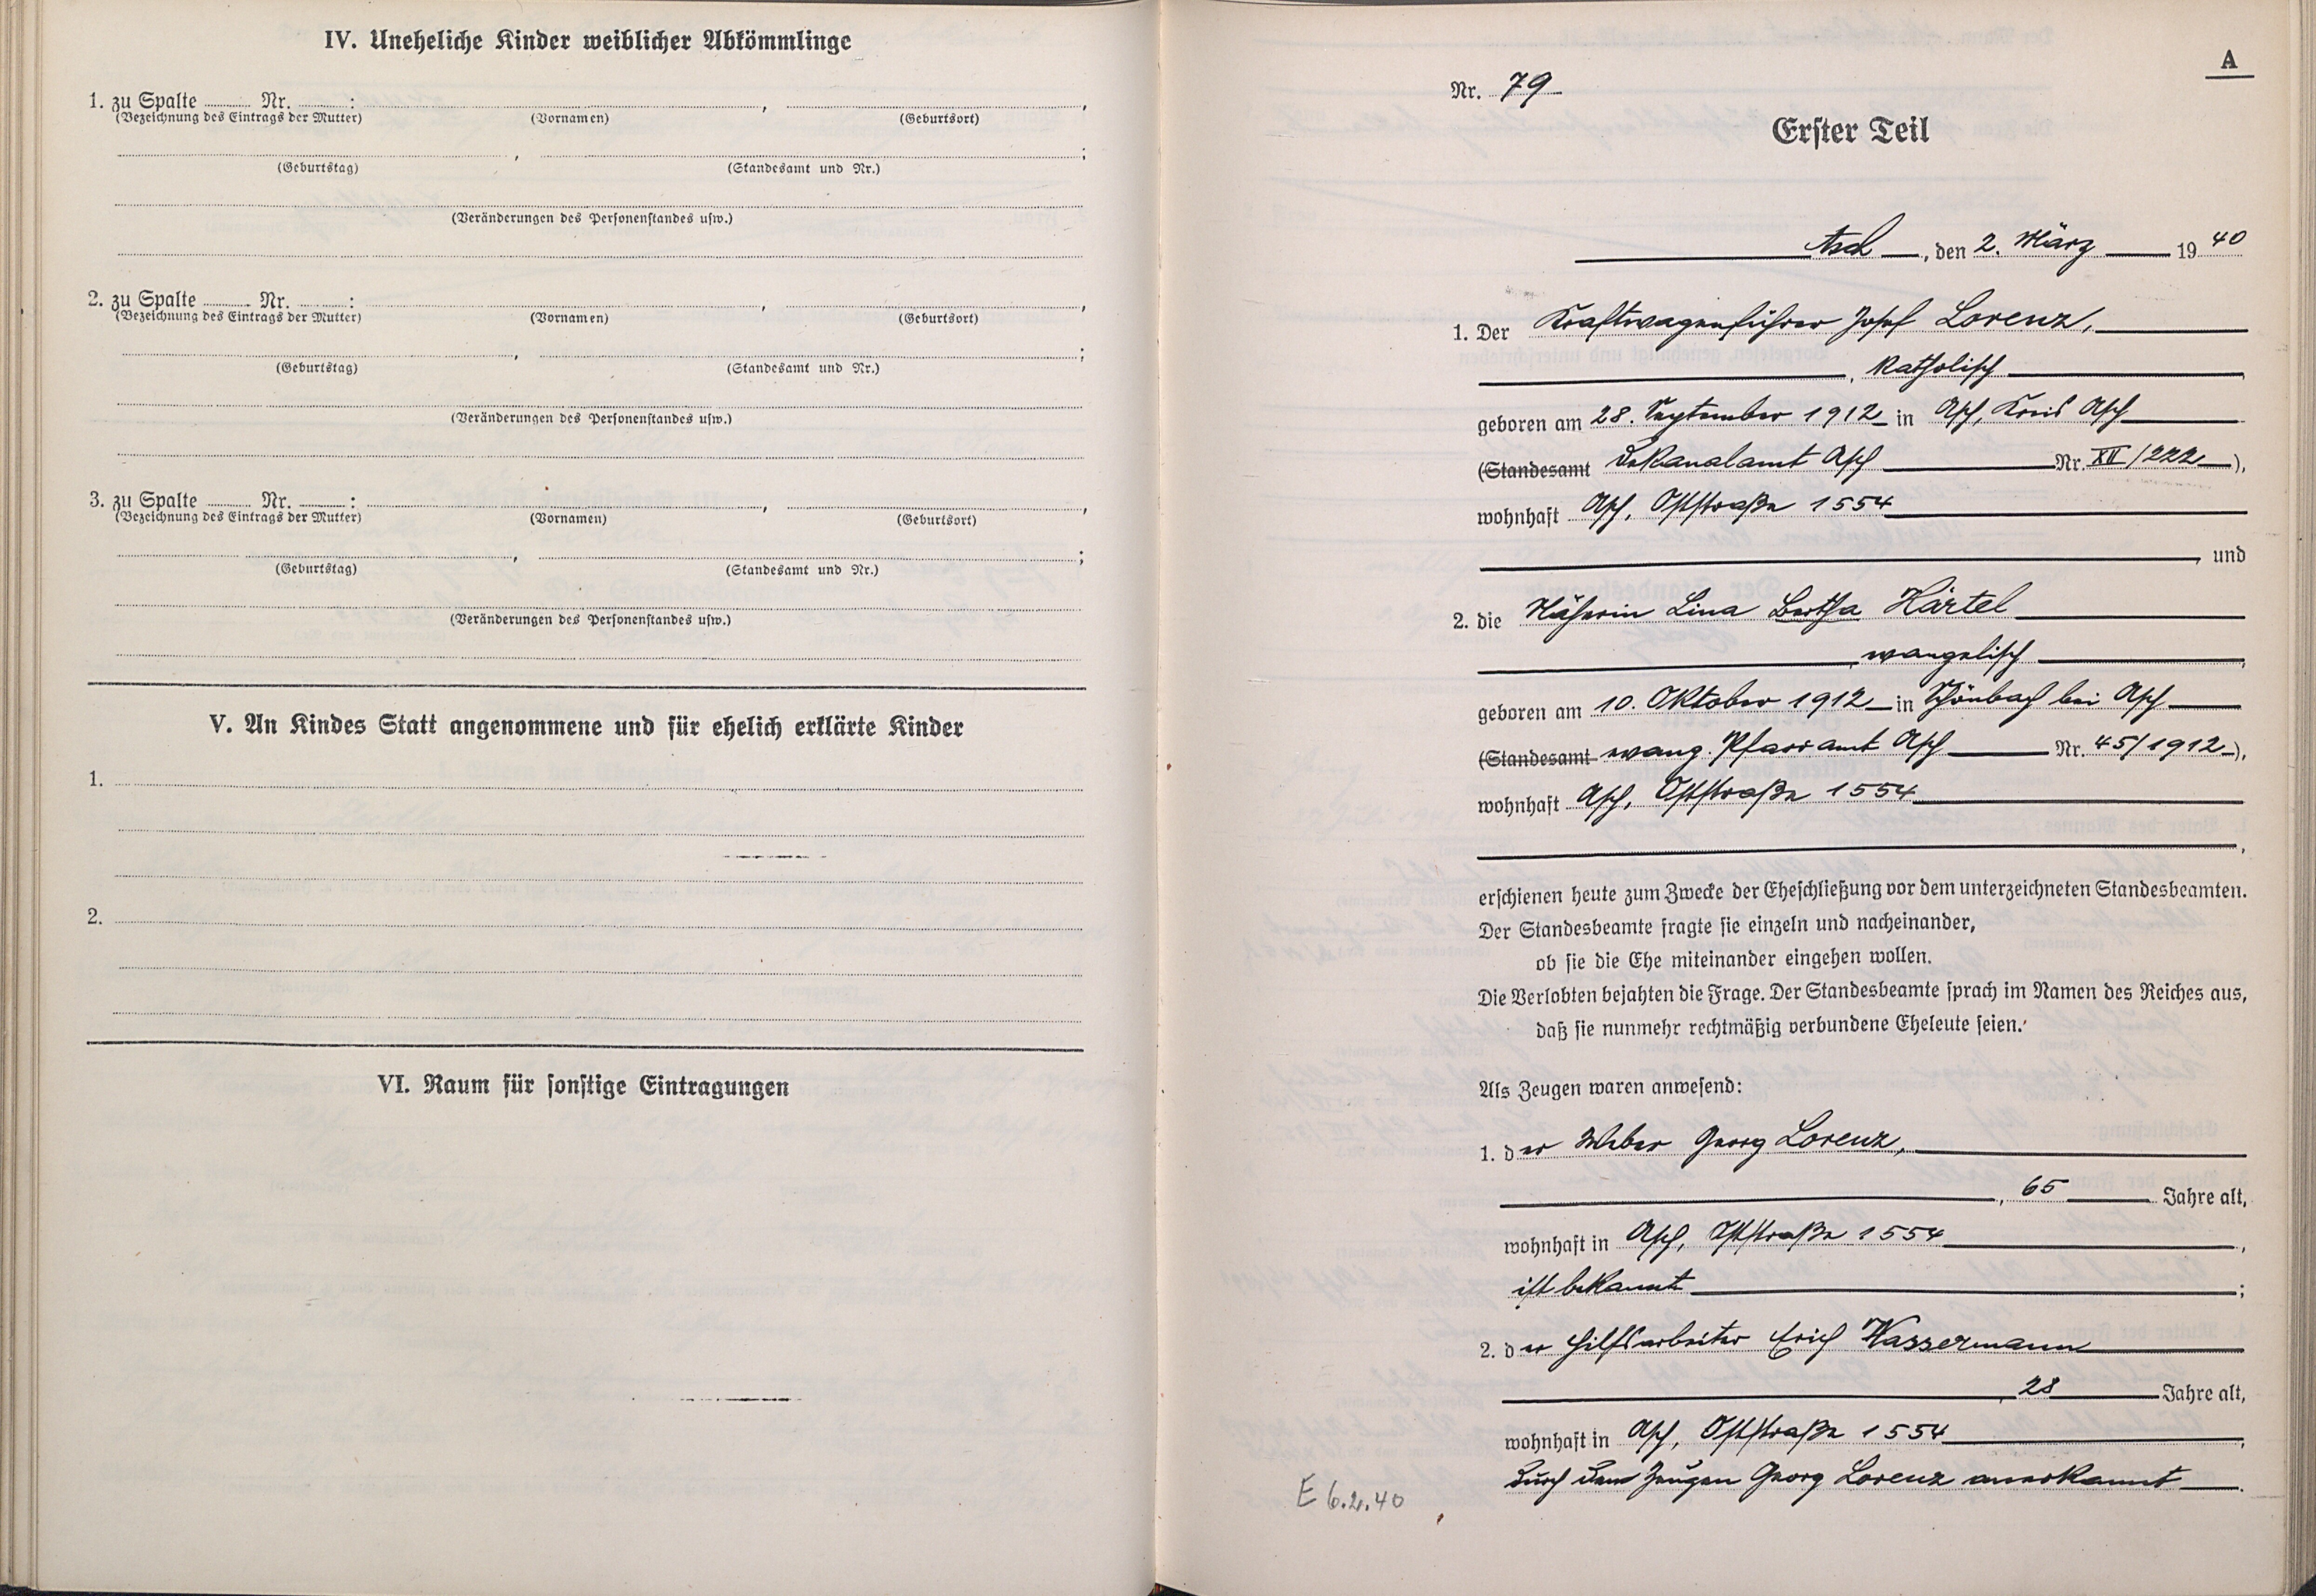 IV. Uneheliche Kinder weiblicher Abkömmlinge
1. zu Spalte ........ Nr. ........:
(Bezeichnung des Eintrags der Mutter) (Vornamen) , (Geburtsort) ,
(Geburtstag) , (Standesamt und Nr.) ;
(Veränderungen des Personenstandes usw.)
2. zu Spalte ........ Nr. ........:
(Bezeichnung des Eintrags der Mutter) (Vornamen) , (Geburtsort) ,
(Geburtstag) , (Standesamt und Nr.) ;
(Veränderungen des Personenstandes usw.)
3. zu Spalte ........ Nr. ........:
(Bezeichnung des Eintrags der Mutter) (Vornamen) , (Geburtsort) ,
(Geburtstag) , (Standesamt und Nr.) ;
(Veränderungen des Personenstandes usw.)
V. An Kindes Statt angenommene und für ehelich erklärte Kinder
1.
2.
VI. Raum für sonstige Eintragungen
A
Nr. 79
Erster Teil
Asch, den 2. März 1940
1. Der Kraftwagenführer Josef Lorenz,
, katholisch
geboren am 28. September 1912 in Asch, Kreis Asch
(Standesamt Dekanalamt Asch Nr. XII/222),
wohnhaft Asch, Oststraße 1554
, und
2. die Näherin Lina Bertha Härtel
, evangelisch,
geboren am 10. Oktober 1912 in Schönbach bei Asch
(Standesamt evang. Pfarramt Asch Nr. 45/1912),
wohnhaft Asch, Oststraße 1554
,
erschienen heute zum Zwecke der Eheschließung vor dem unterzeichneten Standesbeamten.
Der Standesbeamte fragte sie einzeln und nacheinander,
ob sie die Ehe miteinander eingehen wollen.
Die Verlobten bejahten die Frage. Der Standesbeamte sprach im Namen des Reiches aus,
daß sie nunmehr rechtmäßig verbundene Eheleute seien.
Als Zeugen waren anwesend:
1. der Weber Georg Lorenz,
, 65 Jahre alt,
wohnhaft in Asch, Oststraße 1554,
ist bekannt;
2. der Hilfsarbeiter Erich Wassermann
, 28 Jahre alt,
wohnhaft in Asch, Oststraße 1554,
durch den Zeugen Georg Lorenz anerkannt.
E 6.2.40